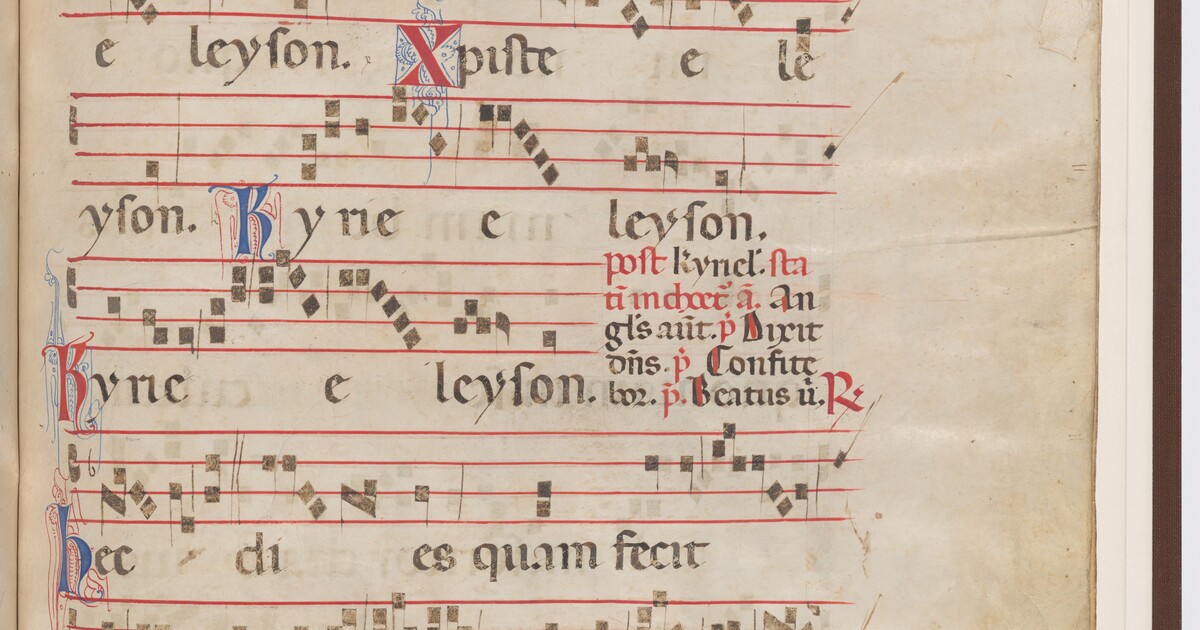 e leyſon. Xpiſte e le
yſon. Kyrie e leyſon.
poſt kyriel'. ſta
tī in choet̄ ā. An
gl's aūt. p̄ Dixit
dn̄s. p̄ Confite
bor. p̄. Beatus ū. R
Kyrie e leyſon.
hec di es quam fecit